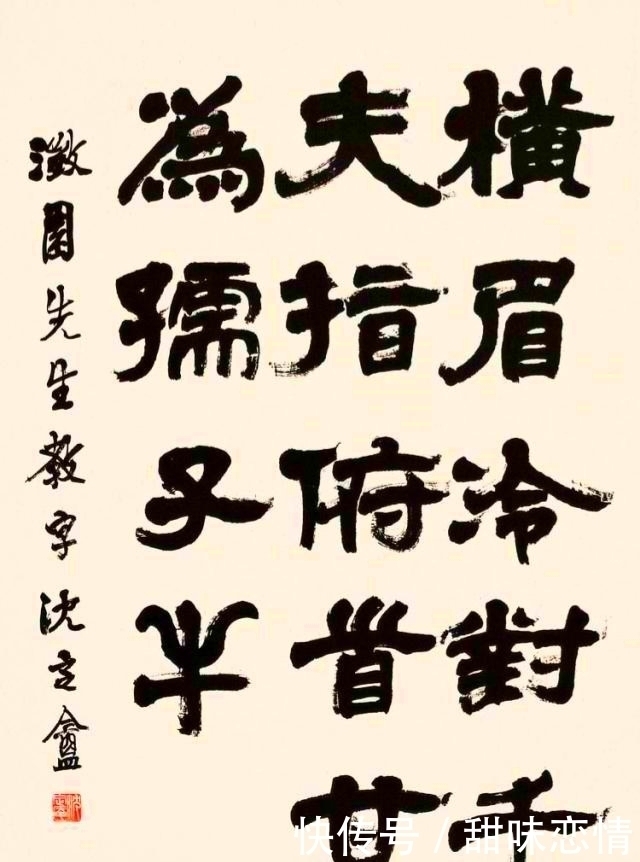 橫眉冷對千
夫指俯首甘
爲孺子牛
澂園先生教字沈定盦
快传号 / 甜味恋情